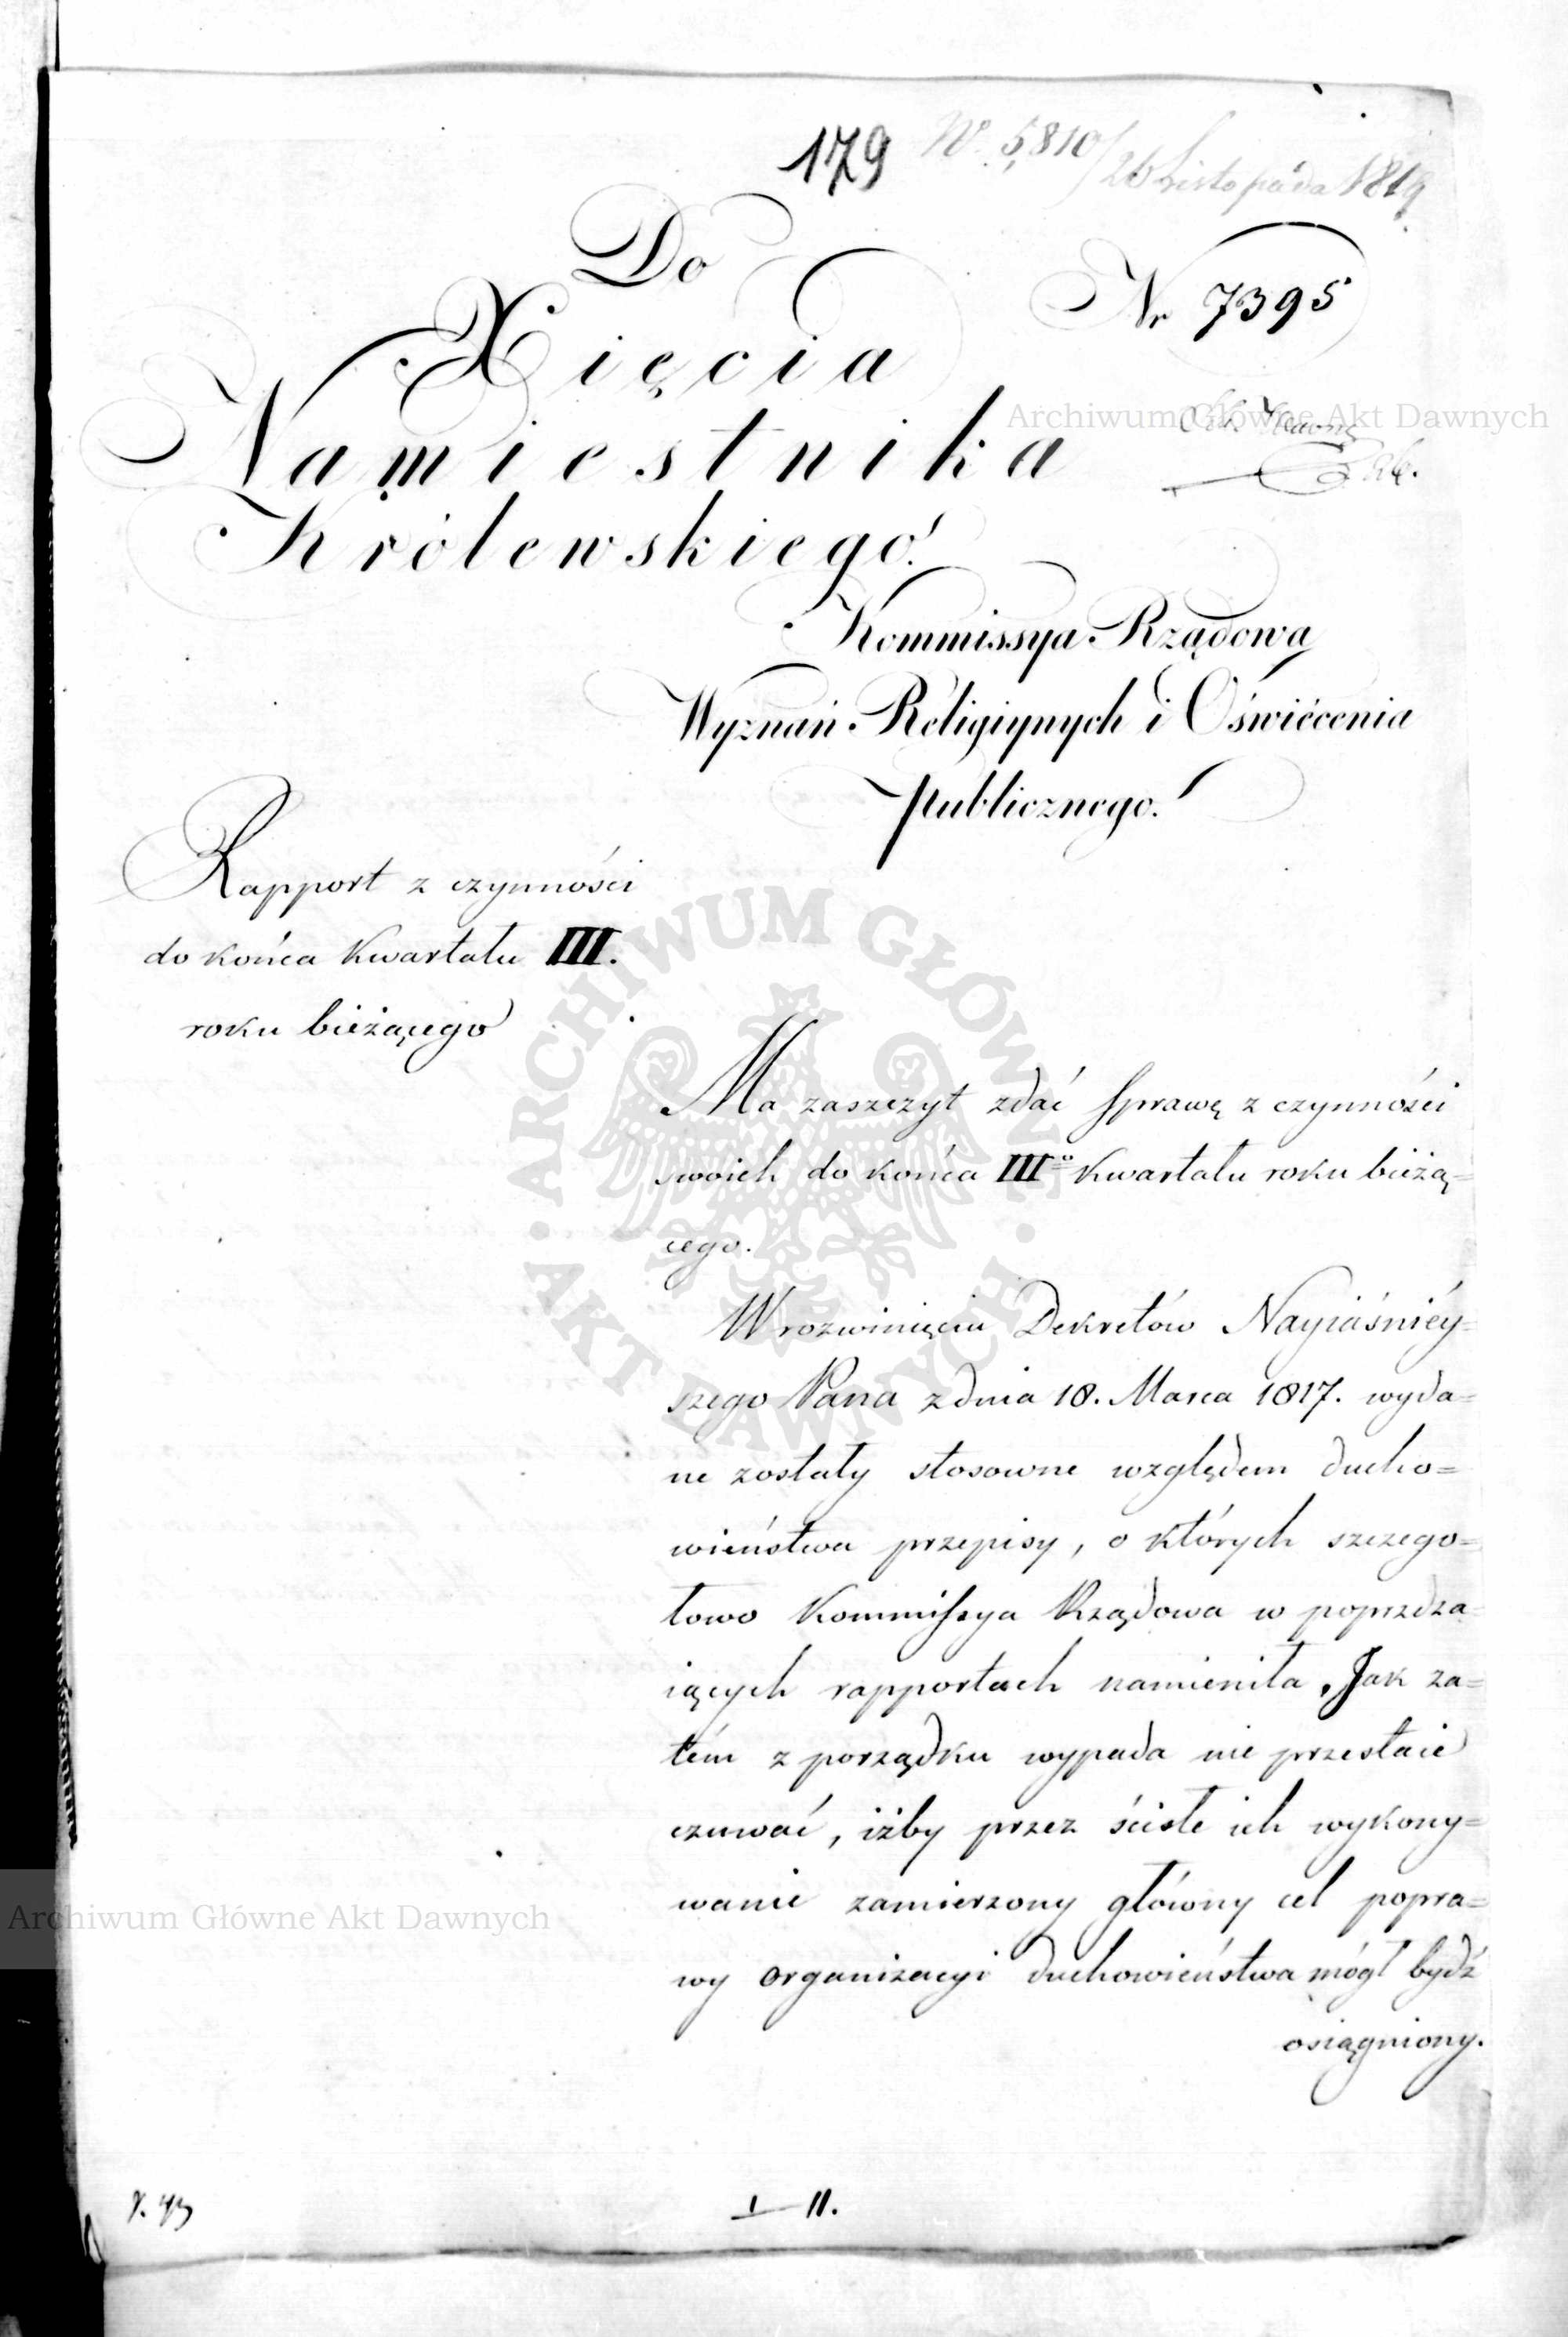 179
Nº 5,810/26 Listopada 1819
Do
Nr 7395
Xięcia
Namiestnika
Królewskiego.
Archiwum Główne Akt Dawnych
Kommissya Rządowa
Wyznań Religiynych i Oświécenia
publicznego.
Rapport z czynności
do końca Kwartału III.
roku bieżącego
ARCHIWUM GŁÓWNE
AKT DAWNYCH
Ma zaszczyt zdać sprawę z czynności
swoich do końca IIIº Kwartału roku bieżą=
cego.
W rozwinięciu Dekretów Nayiaśniéy=
szego Pana z dnia 18. Marca 1817. wyda=
ne zostały stosowne względem ducho=
wieństwa przepisy, o których szczego=
łowo Kommissya Rządowa w poprzdza=
iących rapportach namieniła. Jak za=
tém z porządku wypada nie przestaie
czuwać, iżby przez ścisłe ich wykony=
wanie zamierzony główny cel popra=
wy organizacyi duchowieństwa mógł bydź
osiągniony.
Archiwum Główne Akt Dawnych
I—II.